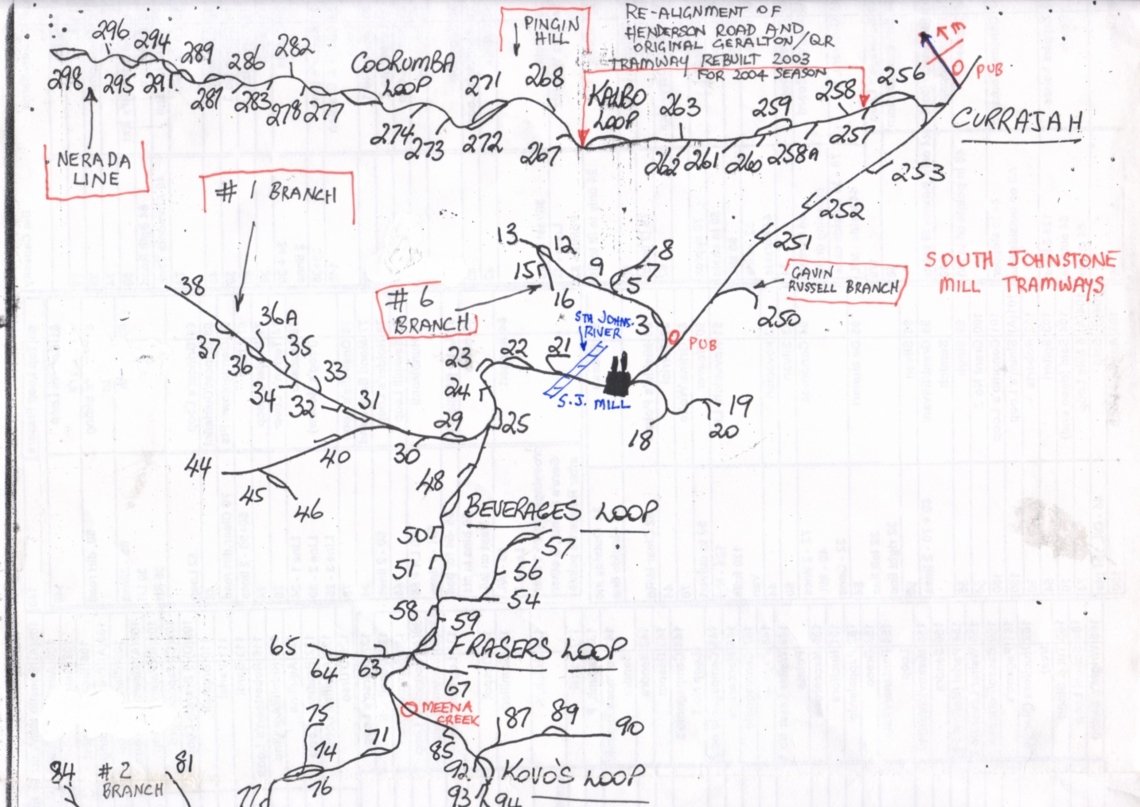 RE-ALIGNMENT OF
HENDERSON ROAD AND
ORIGINAL GERALTON/QR
TRAMWAY REBUILT 2003
FOR 2004 SEASON
PINGIN
HILL
PUB
CURRAJAH
COORUMBA
LOOP
KALBO
LOOP
298
296
295
294
291
289
287
286
283
282
278
277
274
273
272
271
268
267
263
262
261
260
259
258A
258
257
256
253
252
251
250
NERADA
LINE
# 1 BRANCH
SOUTH JOHNSTONE
MILL TRAMWAYS
GAVIN
RUSSELL BRANCH
# 6
BRANCH
13
12
15
16
9
8
7
5
3
PUB
STH JOHNS.
RIVER
S.J. MILL
38
37
36A
36
35
34
33
32
31
30
29
23
22
21
24
25
18
19
20
40
44
45
46
48
BEVERAGES LOOP
50
51
57
56
54
58
59
FRASERS LOOP
65
64
63
67
MEENA
CREEK
75
74
71
76
77
85
87
89
90
92
KOVO'S LOOP
93
94
84
# 2
BRANCH
81